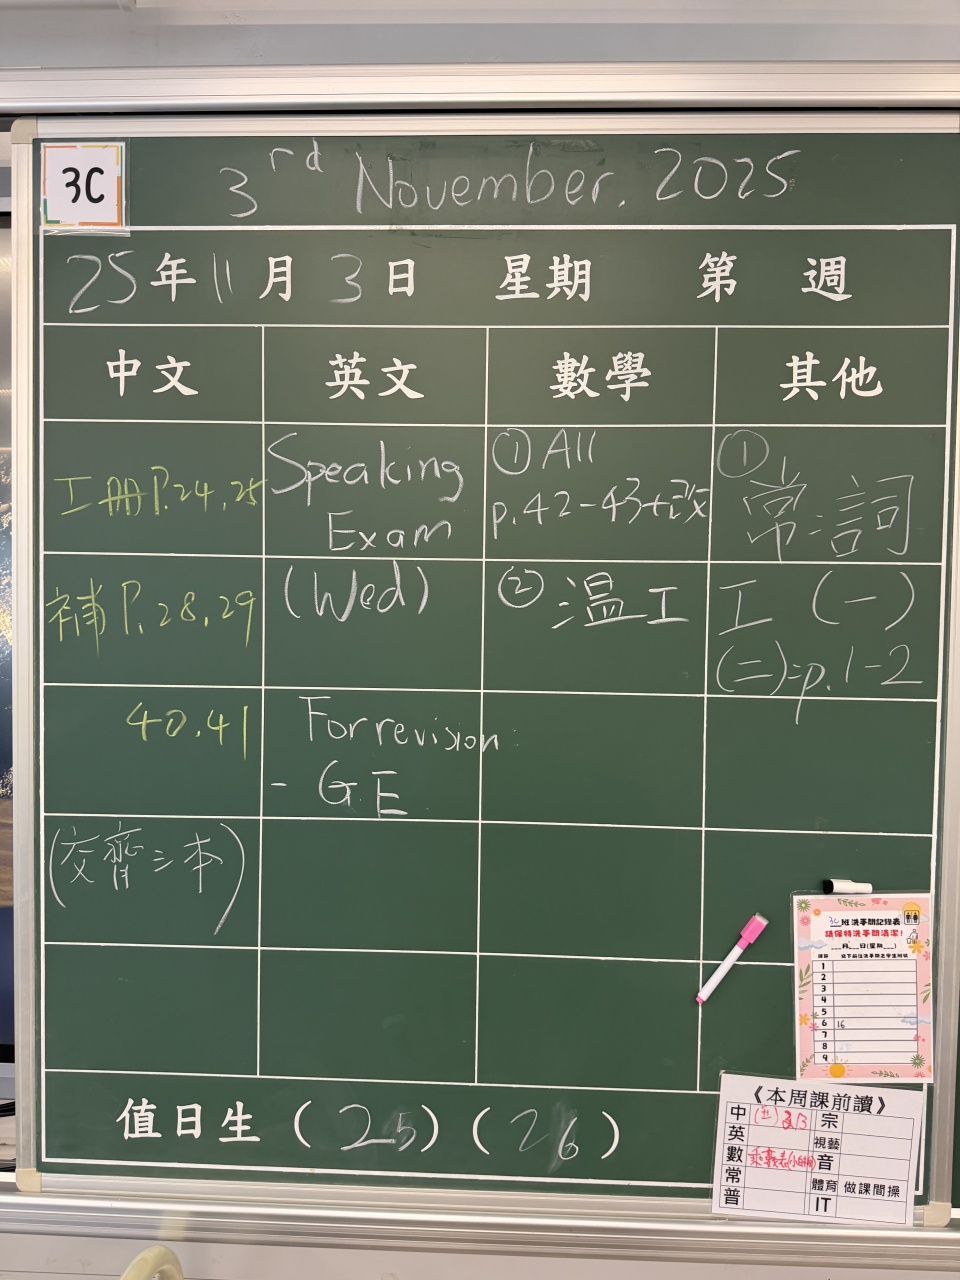 3C
3rd November. 2025
25年11月3日 星期 第 週
中文 英文 數學 其他
工冊P.24,25
補P.28,29
40.41
(交齊三本)
Speaking
Exam
(Wed)
For revision:
- G.E
① All
p.42-43+改
② 溫工
①
常:詞
工(一)
(二):p.1-2
值日生(25)(26)
3C班洗手間記錄表
請保持洗手間清潔!
__月__日(星期__)
課節 寫下前往洗手間之學生班號
1
2
3
4
5
6 16
7
8
9
《本周課前讀》
中 宗
英 視藝
數 音
常 體育 做課間操
普 IT